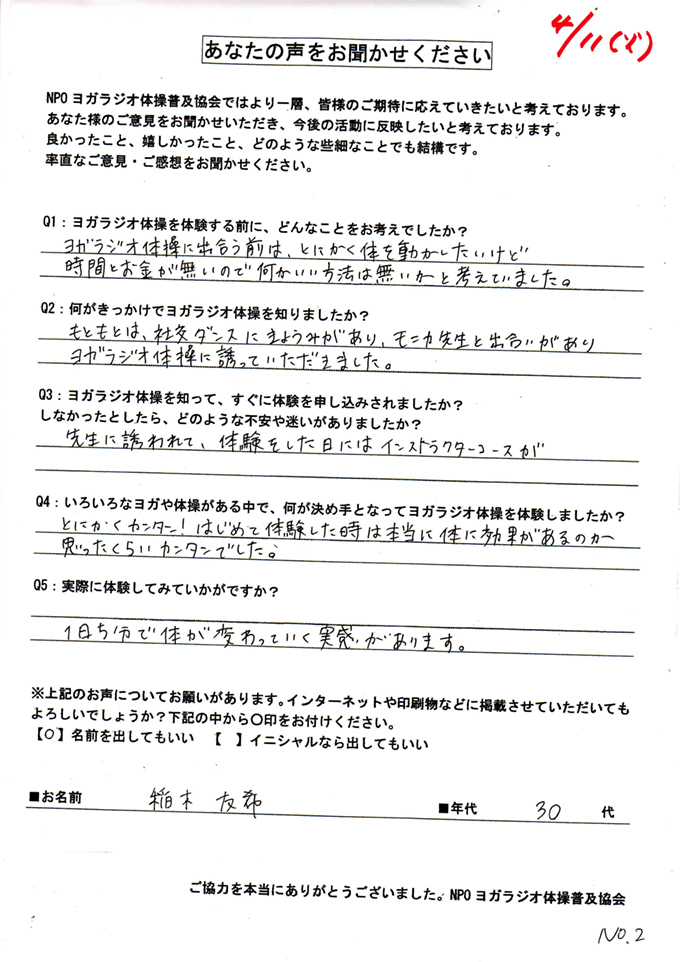 4/11(火)
あなたの声をお聞かせください
NPOヨガラジオ体操普及協会ではより一層、皆様のご期待に応えていきたいと考えております。
あなた様のご意見をお聞かせいただき、今後の活動に反映したいと考えております。
良かったこと、嬉しかったこと、どのような些細なことでも結構です。
率直なご意見・ご感想をお聞かせください。
Q1:ヨガラジオ体操を体験する前に、どんなことをお考えでしたか?
ヨガラジオ体操に出合う前は、とにかく体を動かしたいけど
時間とお金が無いので何かいい方法は無いかと考えていました。
Q2:何がきっかけでヨガラジオ体操を知りましたか?
もともとは、社交ダンスにきょうみがあり、モニカ先生と出合いがあり
ヨガラジオ体操に誘っていただきました。
Q3:ヨガラジオ体操を知って、すぐに体験を申し込みされましたか?
しなかったとしたら、どのような不安や迷いがありましたか?
先生に誘われて、体験をした日にはインストラクターコースが
Q4:いろいろなヨガや体操がある中で、何が決め手となってヨガラジオ体操を体験しましたか?
とにかくカンタン!はじめて体験した時は本当に体に効果があるのか
思ったくらいカンタンでした。
Q5:実際に体験してみていかがですか?
1日5分で体が変わっていく実感があります。
※上記のお声についてお願いがあります。インターネットや印刷物などに掲載させていただいても
よろしいでしょうか?下記の中から〇印をお付けください。
【○】名前を出してもいい 【 】イニシャルなら出してもいい
■お名前 稲木 友希 ■年代 30 代
ご協力を本当にありがとうございました。NPOヨガラジオ体操普及協会
NO.2